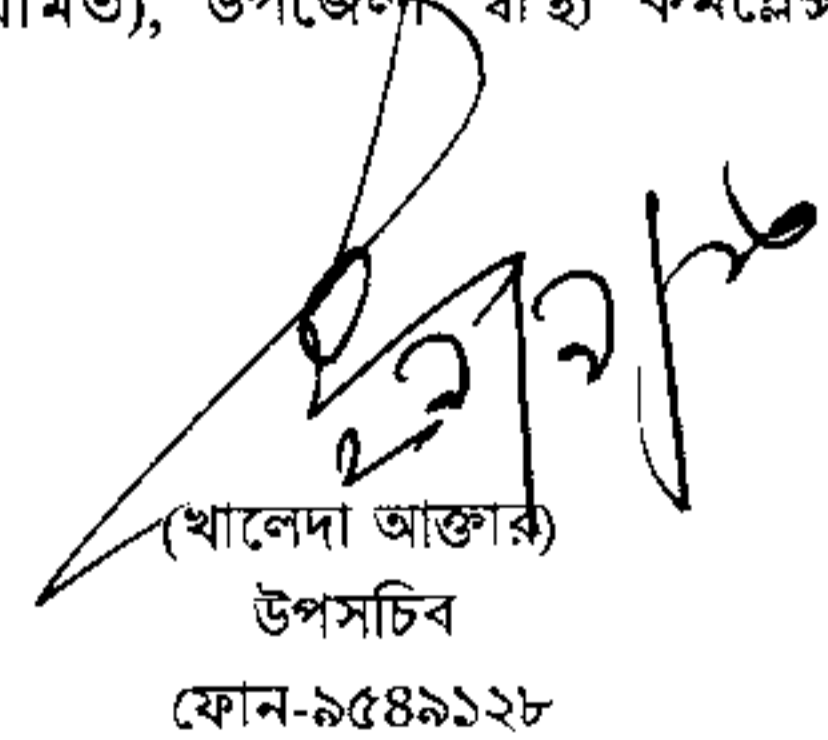 উপজেলা স্বাস্থ্য কমপ্লেক্স
(খালেদা আক্তার)
উপসচিব
ফোন-৯৫৪৯১২৮